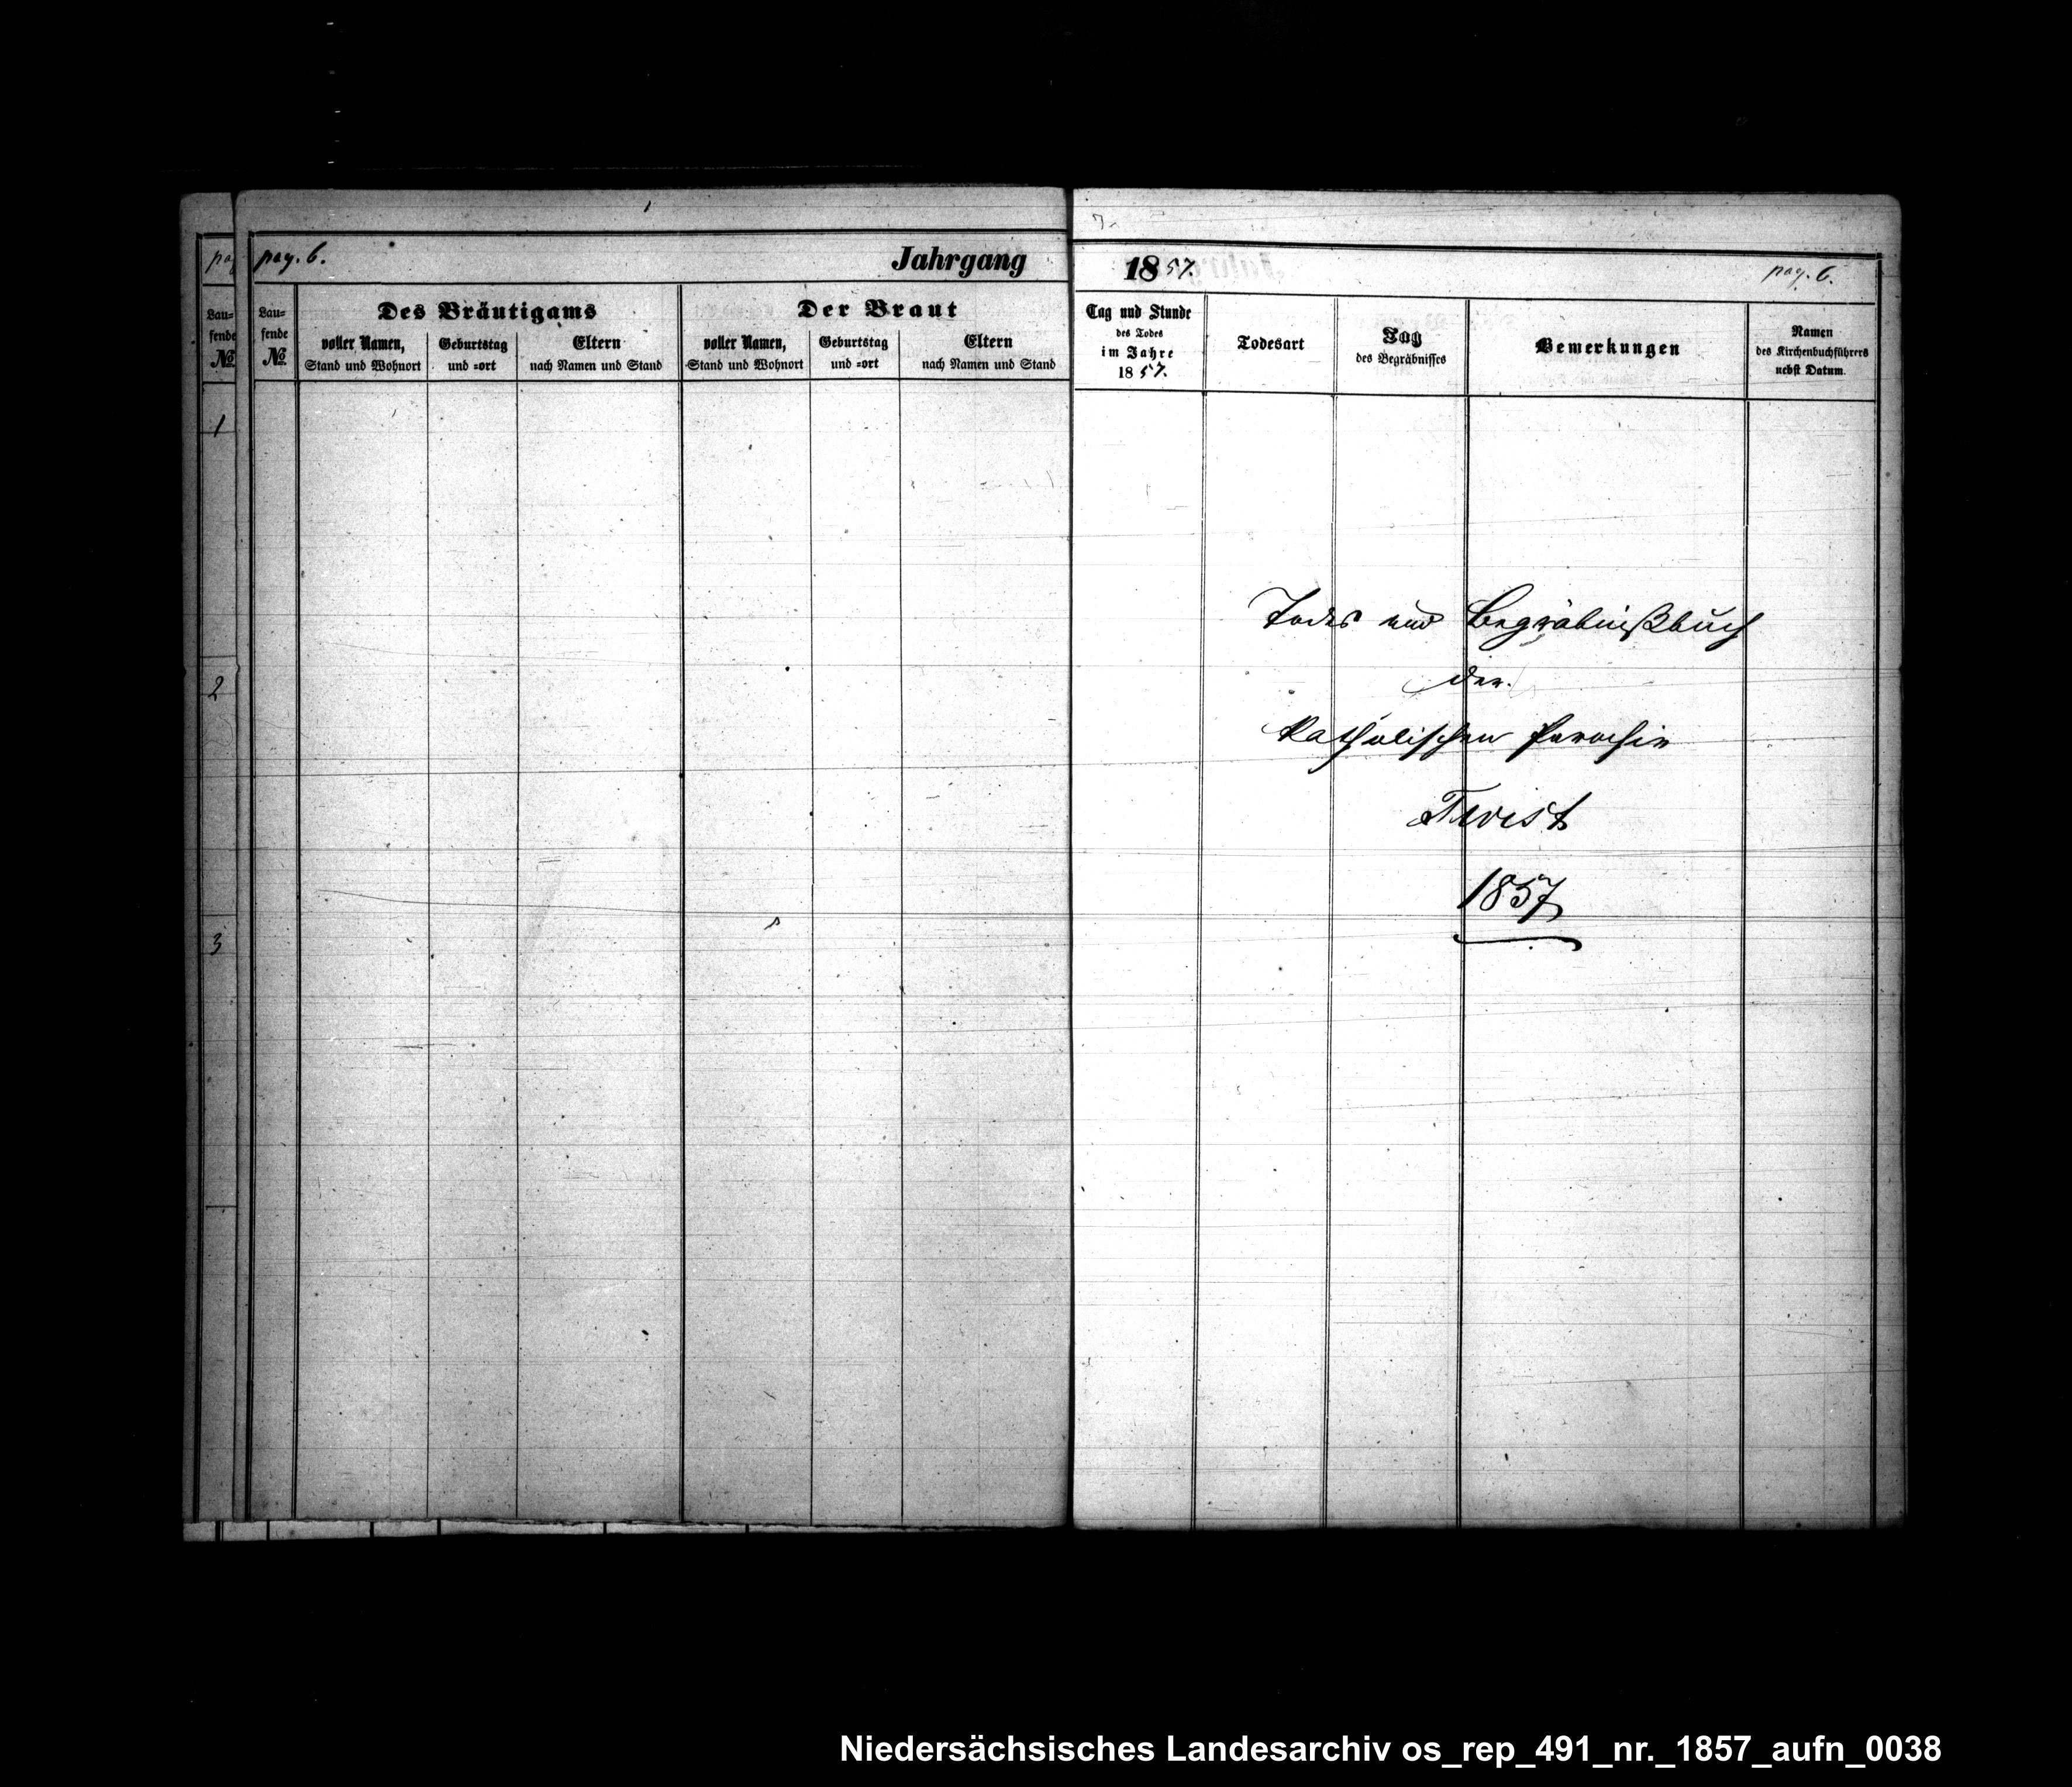 pag. 6.
Jahrgang
1857.
pag. 6.
Lau=
fende
№
Lau=
fende
№
Des Bräutigams
voller Namen,
Stand und Wohnort
Geburtstag
und =ort
Eltern
nach Namen und Stand
Der Braut
voller Namen,
Stand und Wohnort
Geburtstag
und =ort
Eltern
nach Namen und Stand
Tag und Stunde
des Todes
im Jahre
1857.
Todesart
Tag
des Begräbnisses
Bemerkungen
Namen
des Kirchenbuchführers
nebst Datum.
1
2
3
Todes und Begräbnißbuch
der
katholischen Parochie
Twist
1857
Niedersächsisches Landesarchiv os_rep_491_nr._1857_aufn_0038